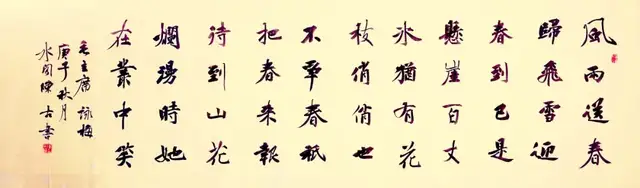 風雨送春
歸飛雪迎
春到已是
懸崖百丈
冰猶有花
枝俏俏也
不爭春祇
把春来報
待到山花
爛漫時她
在叢中笑
毛主席詠梅
庚子秋月
陳古書